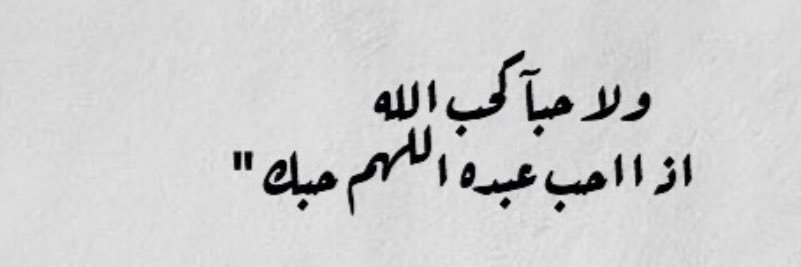 ولا حبآ كحب الله
اذا احب عبده اللهم حبك "